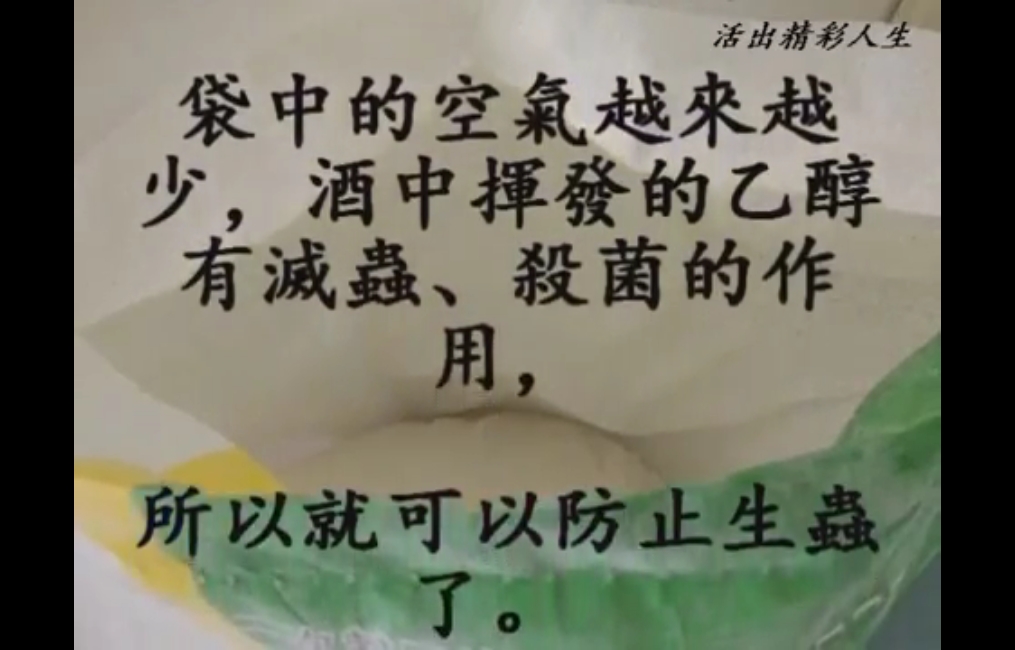 活出精彩人生
袋中的空氣越來越
少，酒中揮發的乙醇
有滅蟲、殺菌的作
用，
所以就可以防止生蟲
了。